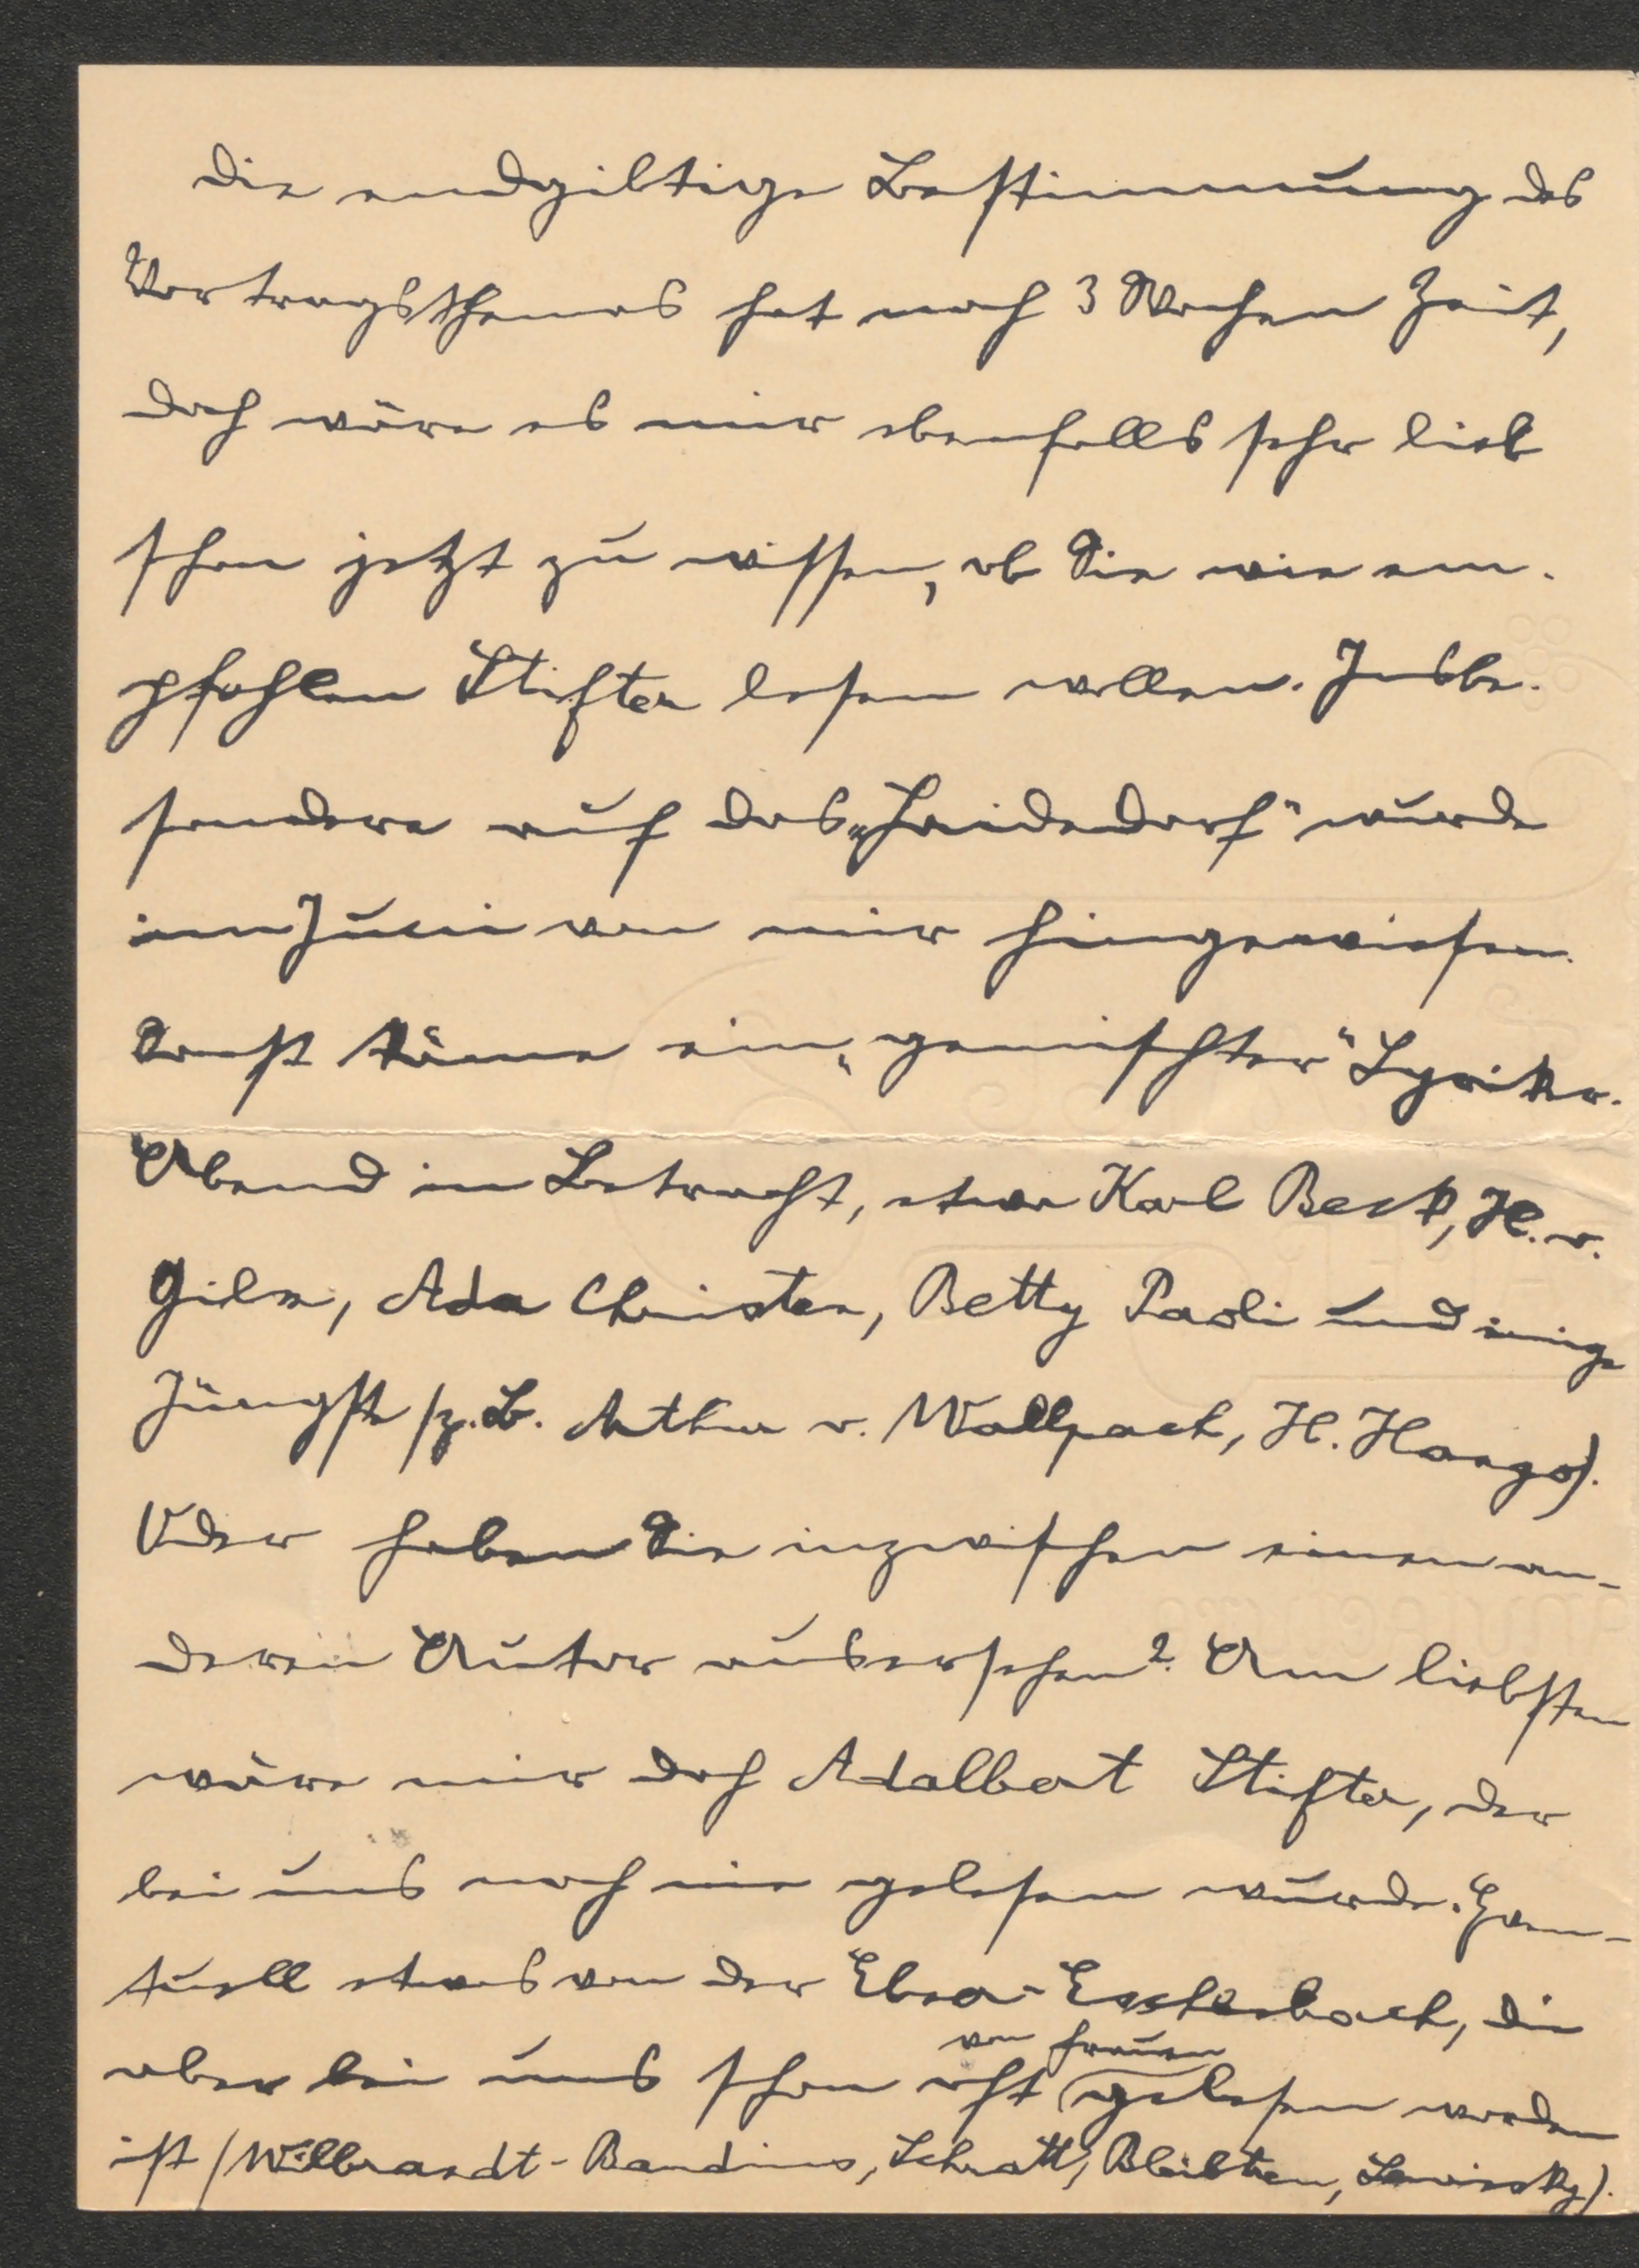 Die endgiltige Bestimmung des
Vortragsthemas hat noch 3 Wochen Zeit,
doch wäre es mir ebenfalls sehr lieb
schon jetzt zu wissen, ob Sie wie em-
pfohlen Stifter lesen wollen. Insbe-
sondere auf das „Haidedorf" wurde
im Juni von mir hingewiesen.
Sonst käme ein „gemischter" Lyriker-
Abend in Betracht, etwa Karl Beck, H. v.
Gilm, Ada Christen, Betty Paoli und einige
Jüngste (z. B. Arthur v. Wallpach, H. Hango).
Oder haben Sie inzwischen einen an-
deren Autor ausersehen? Am liebsten
wäre mir doch Adalbert Stifter, der
bei uns noch nie gelesen wurde. Even-
tuell etwas von der Ebner-Eschenbach, die
von Frauen
aber bei uns schon oft gelesen worden
ist (Wilbrandt-Baudius, Schratt, Bleibtreu, Lewinsky).